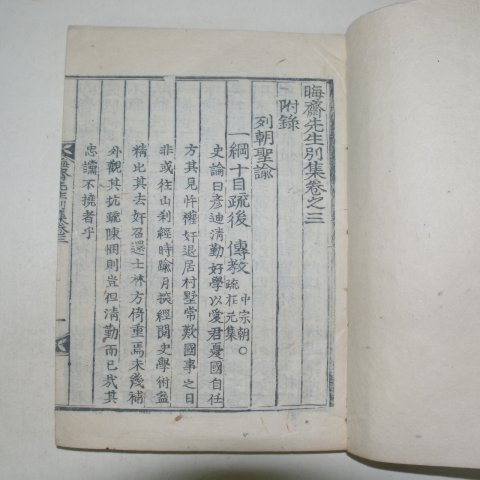 晦齋先生別集卷之三
附錄
列朝聖諭
一綱十目疏後 傳敎 中宗朝○疏在元集
史論曰彦迪淸勤好學以愛君憂國自任
方其見忤權奸退居村墅常歎國事之日
非或往山刹經時踰月披經閱史學術益
精比其去奸召還士林方倚重焉未幾補
外觀其抗疏陳悃則豈但淸勤而已哉其
忠讜不撓者乎
晦齋先生別集卷三
一